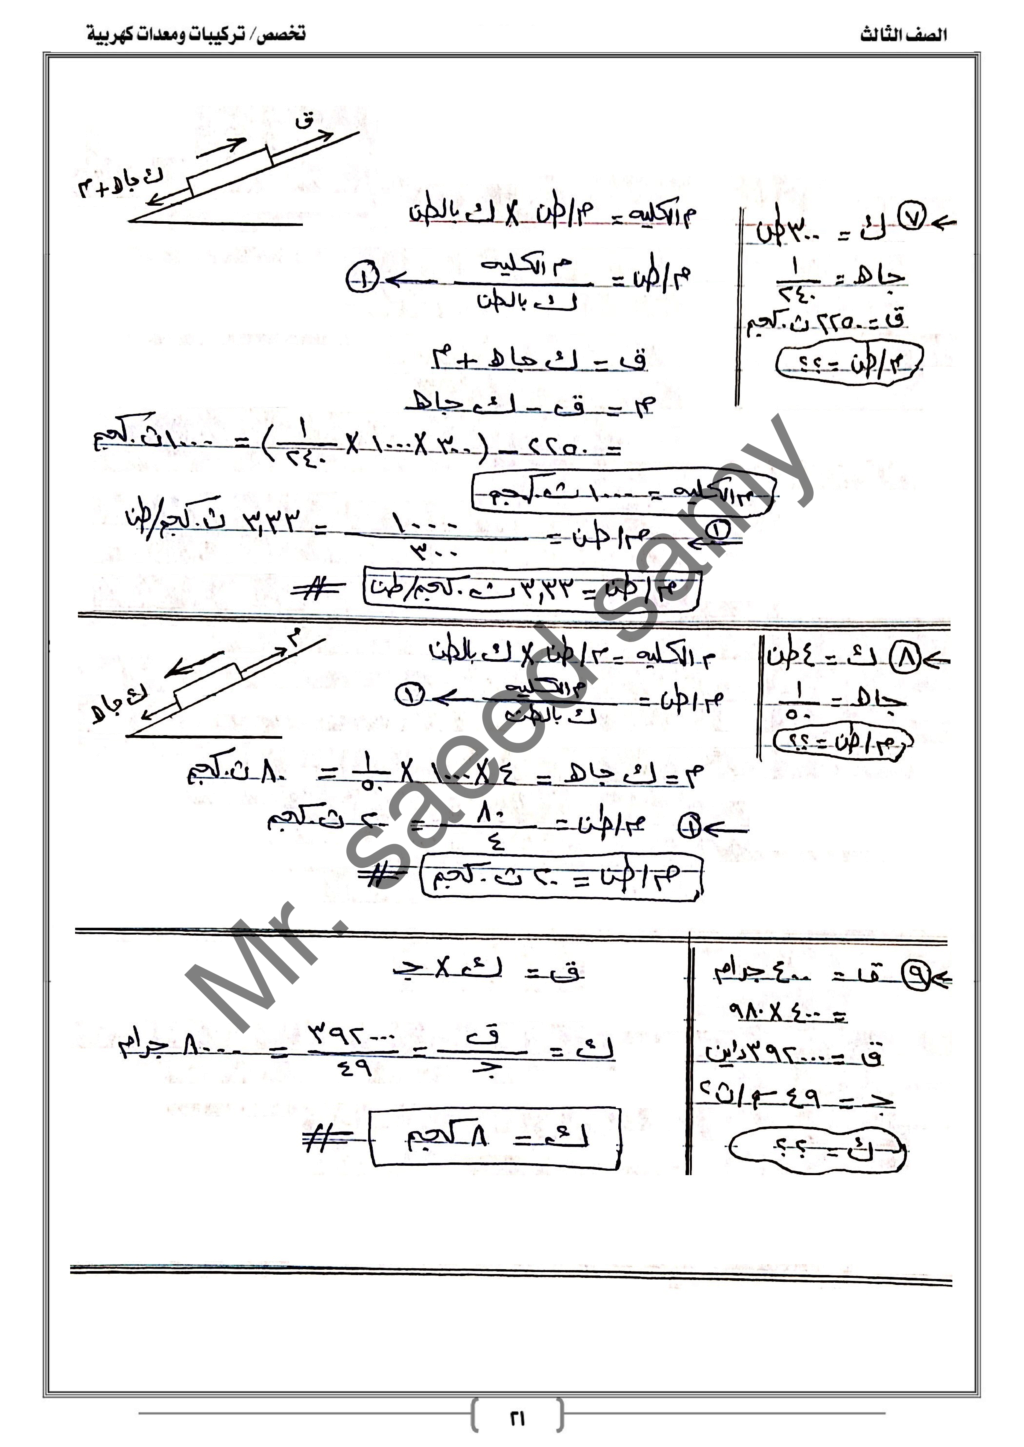 الصف الثالث
تخصص/ تركيبات ومعدات كهربية
ق
ك جاھ + م
← ⑦ ك = ٣٠٠ طن
جاھ = ١/٢٤٠
ق = ٢٢٥٠ ث.كجم
م/طن = ؟؟
م الكلية = م/طن × ك بالطن
م/طن = م الكلية / ك بالطن ← ①
ق = ك جاھ + م
م = ق - ك جاھ
= ٢٢٥٠ - (٣٠٠ × ١٠٠٠ × ١/٢٤٠) = ١٠٠٠ ث.كجم
م الكلية = ١٠٠٠ ث.كجم
① ← م/طن = ١٠٠٠/٣٠٠ = ٣,٣٣ ث.كجم/طن
م/طن = ٣,٣٣ ث.كجم/طن #
← ⑧ ك = ٤ طن
جاھ = ١/٥٠
م/طن = ؟؟
م
ك جاھ
م الكلية = م/طن × ك بالطن
م/طن = م الكلية / ك بالطن ← ①
م = ك جاھ = ٤ × ١٠٠٠ × ١/٥٠ = ٨٠ ث.كجم
← ① م/طن = ٨٠/٤ = ٢٠ ث.كجم
م/طن = ٢٠ ث.كجم #
← ⑨ قَ = ٤٠٠ جرام
= ٤٠٠ × ٩٨٠
ق = ٣٩٢٠٠٠ داين
جـ = ٤٩ سم/ث٢
ك = ؟؟
ق = ك × جـ
ك = ق/جـ = ٣٩٢٠٠٠/٤٩ = ٨٠٠٠ جرام
ك = ٨ كجم #
Mr. saeed samy
٢١